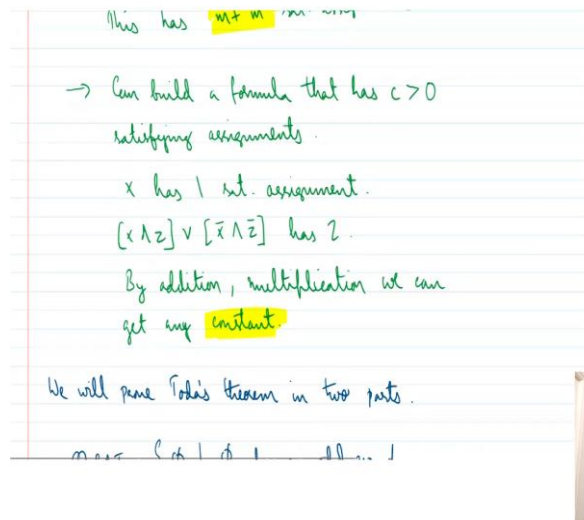 This has m+m'
→ Can build a formula that has c > 0
satisfying assignments.
x has 1 sat. assignment.
[x ∧ z] ∨ [x̄ ∧ z̄] has 2.
By addition, multiplication we can
get any constant.
We will prove Toda's theorem in two parts.